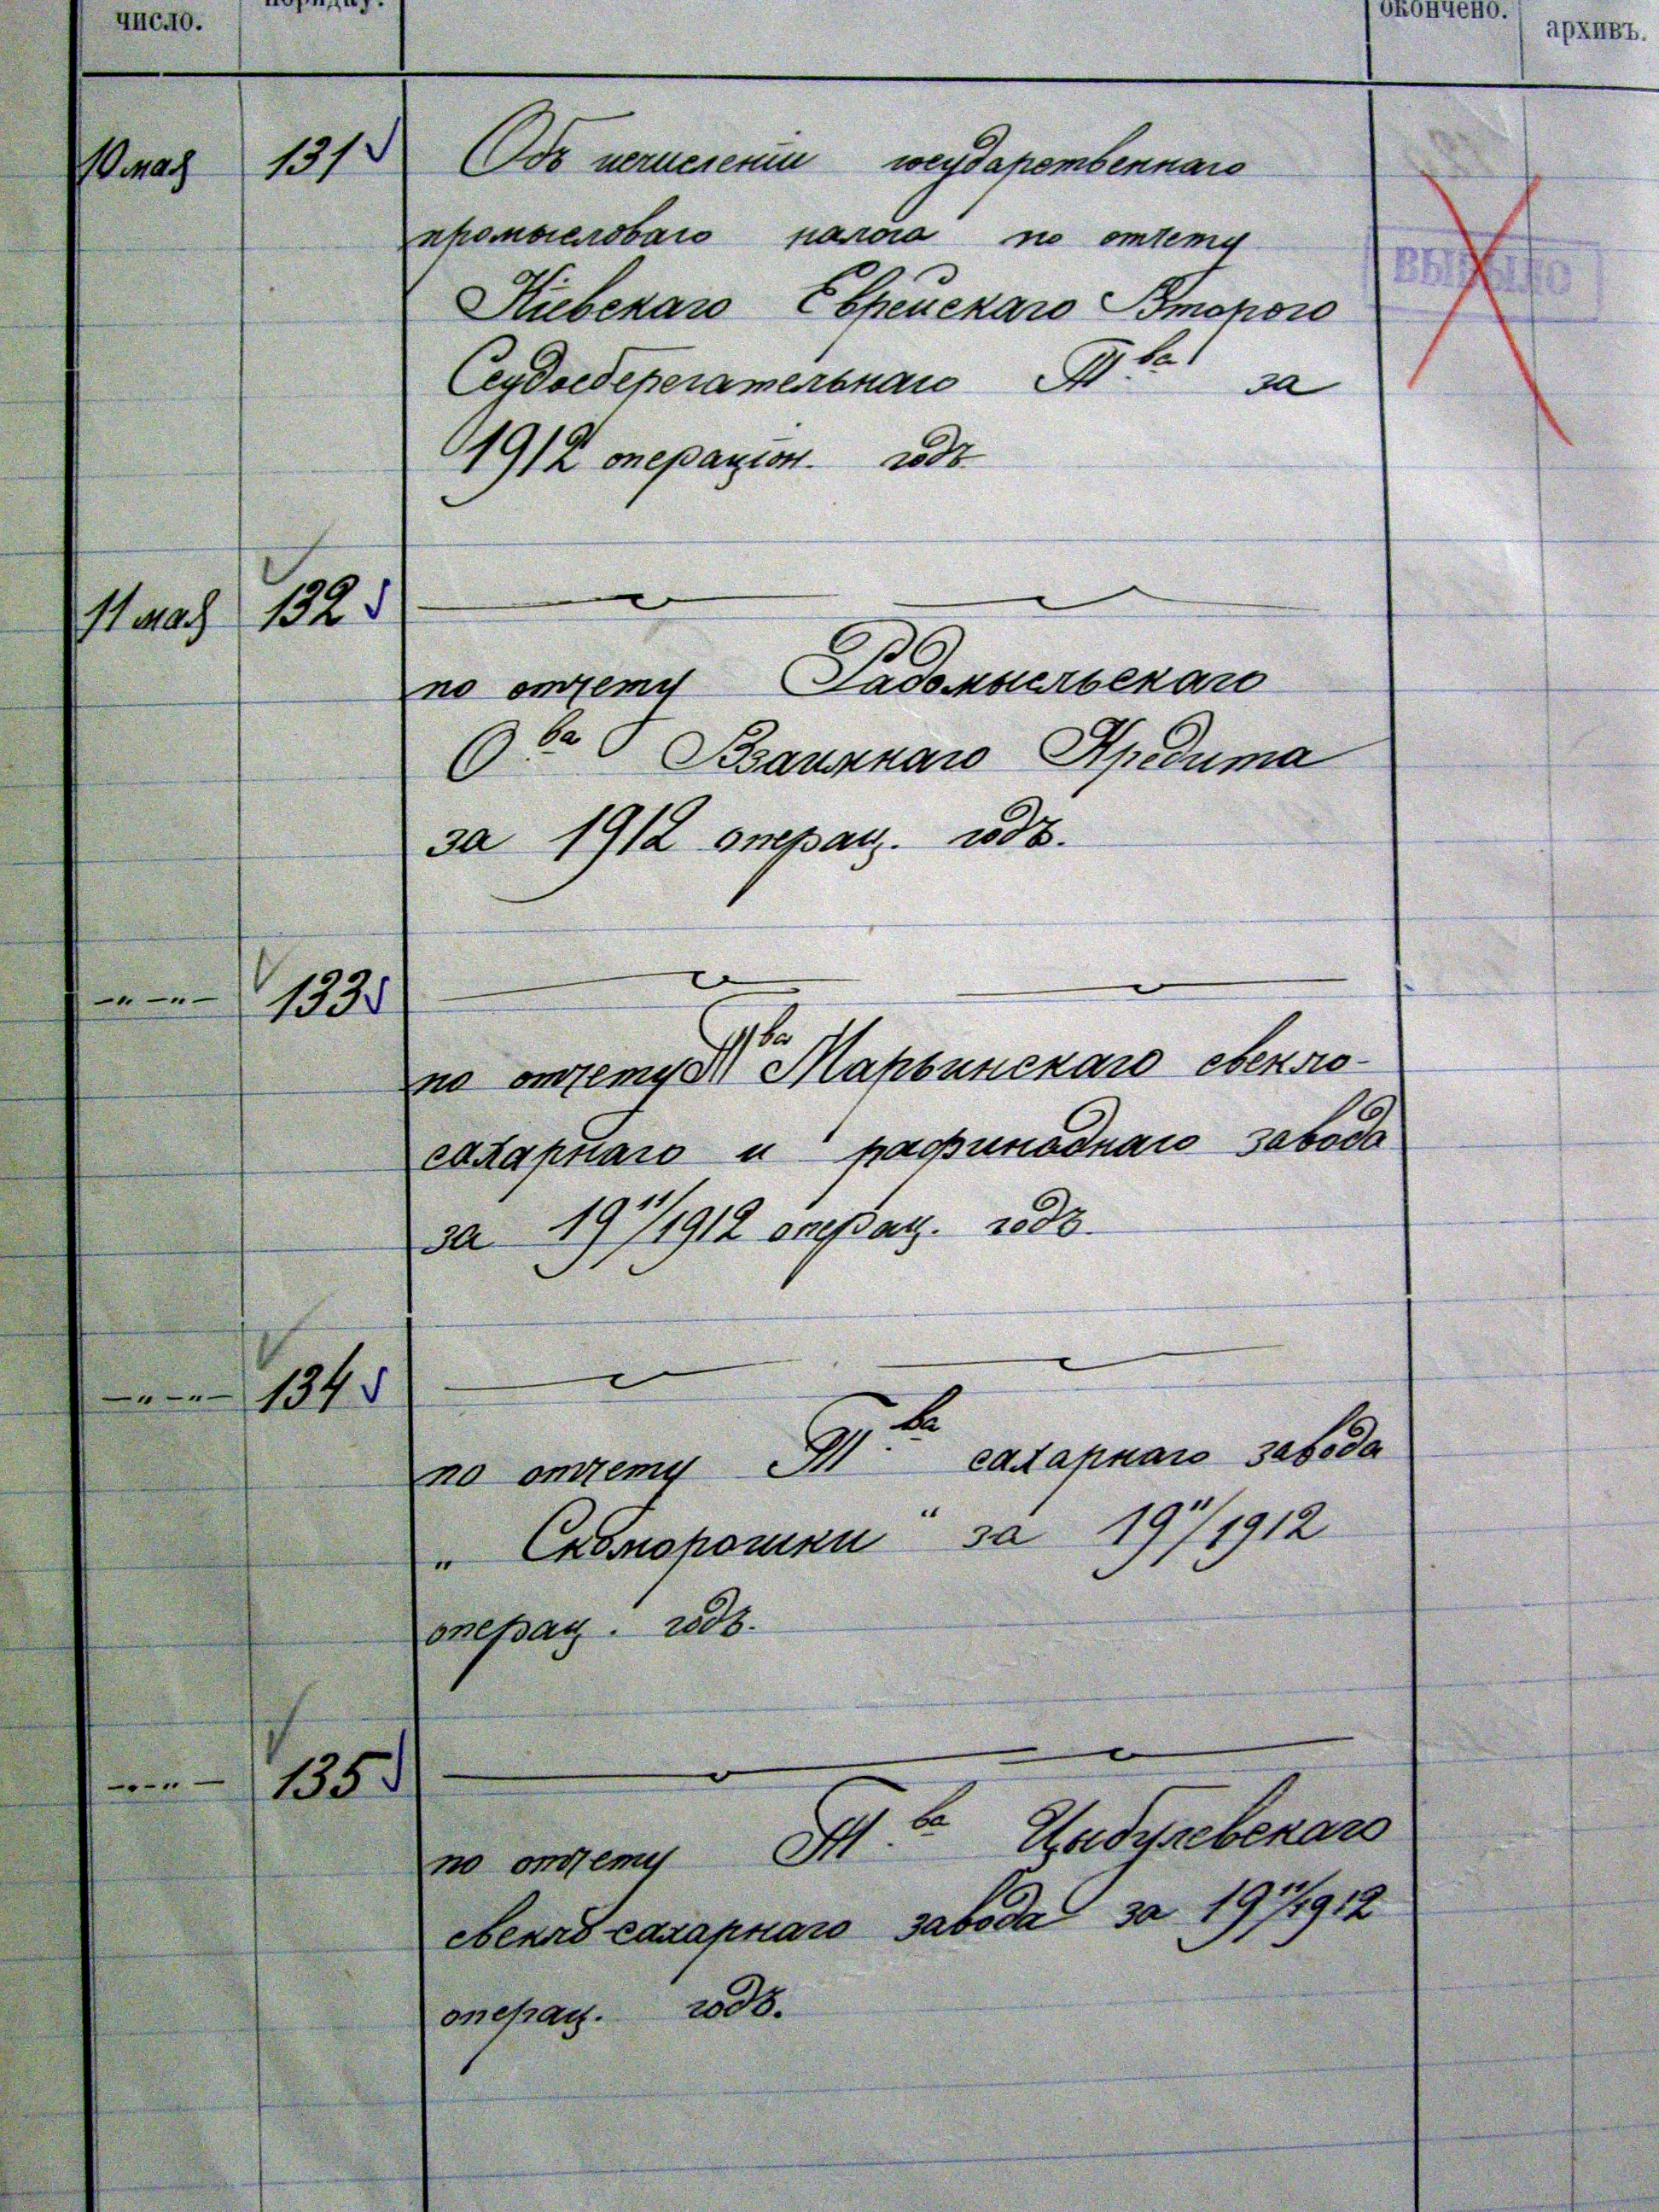 число.
порядку.
окончено.
архивъ.
10 мая 131 Объ исчисленіи государственнаго
промысловаго налога по отчету
Кіевскаго Еврейскаго Второго
Ссудосберегательнаго Т.ва за
1912 операціон. годъ
ВЫБЫЛО
11 мая 132
по отчету Радомысльскаго
О.ва Взаимнаго Кредита
за 1912 операц. годъ.
—"—"— 133
по отчету Т.ва Марьинскаго свекло-
сахарнаго и рафинаднаго завода
за 1911/1912 операц. годъ.
—"—"— 134
по отчету Т.ва сахарнаго завода
„Скоморошки“ за 1911/1912
операц. годъ.
—"—"— 135
по отчету Т.ва Цыбулевскаго
свекло-сахарнаго завода за 1911/1912
операц. годъ.